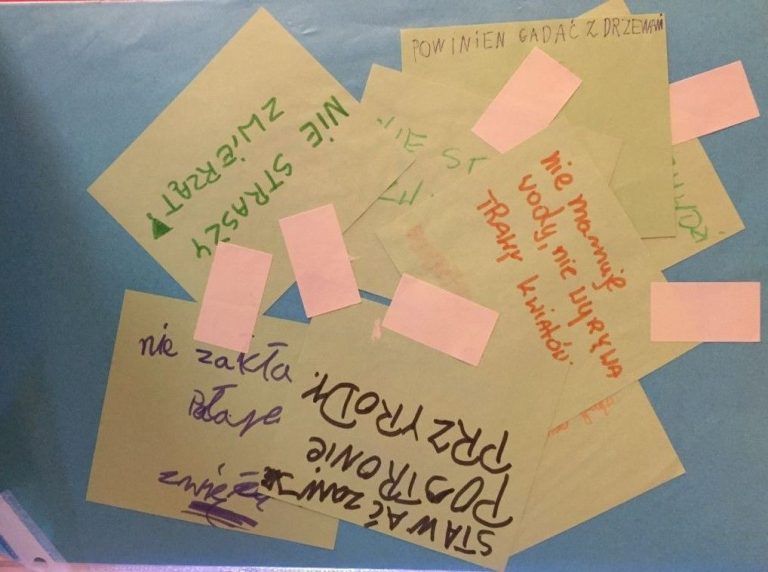 POWINIEN GADAĆ Z DRZEWAMI
NIE STRASZY
ZWIERZĄT!
NIE ST
nie marnuje
wody, nie wyrywa
TRAWY KWIATÓW
nie zakłó
STAWAĆ ZAWSZE
PO STRONIE
PRZYRODY.